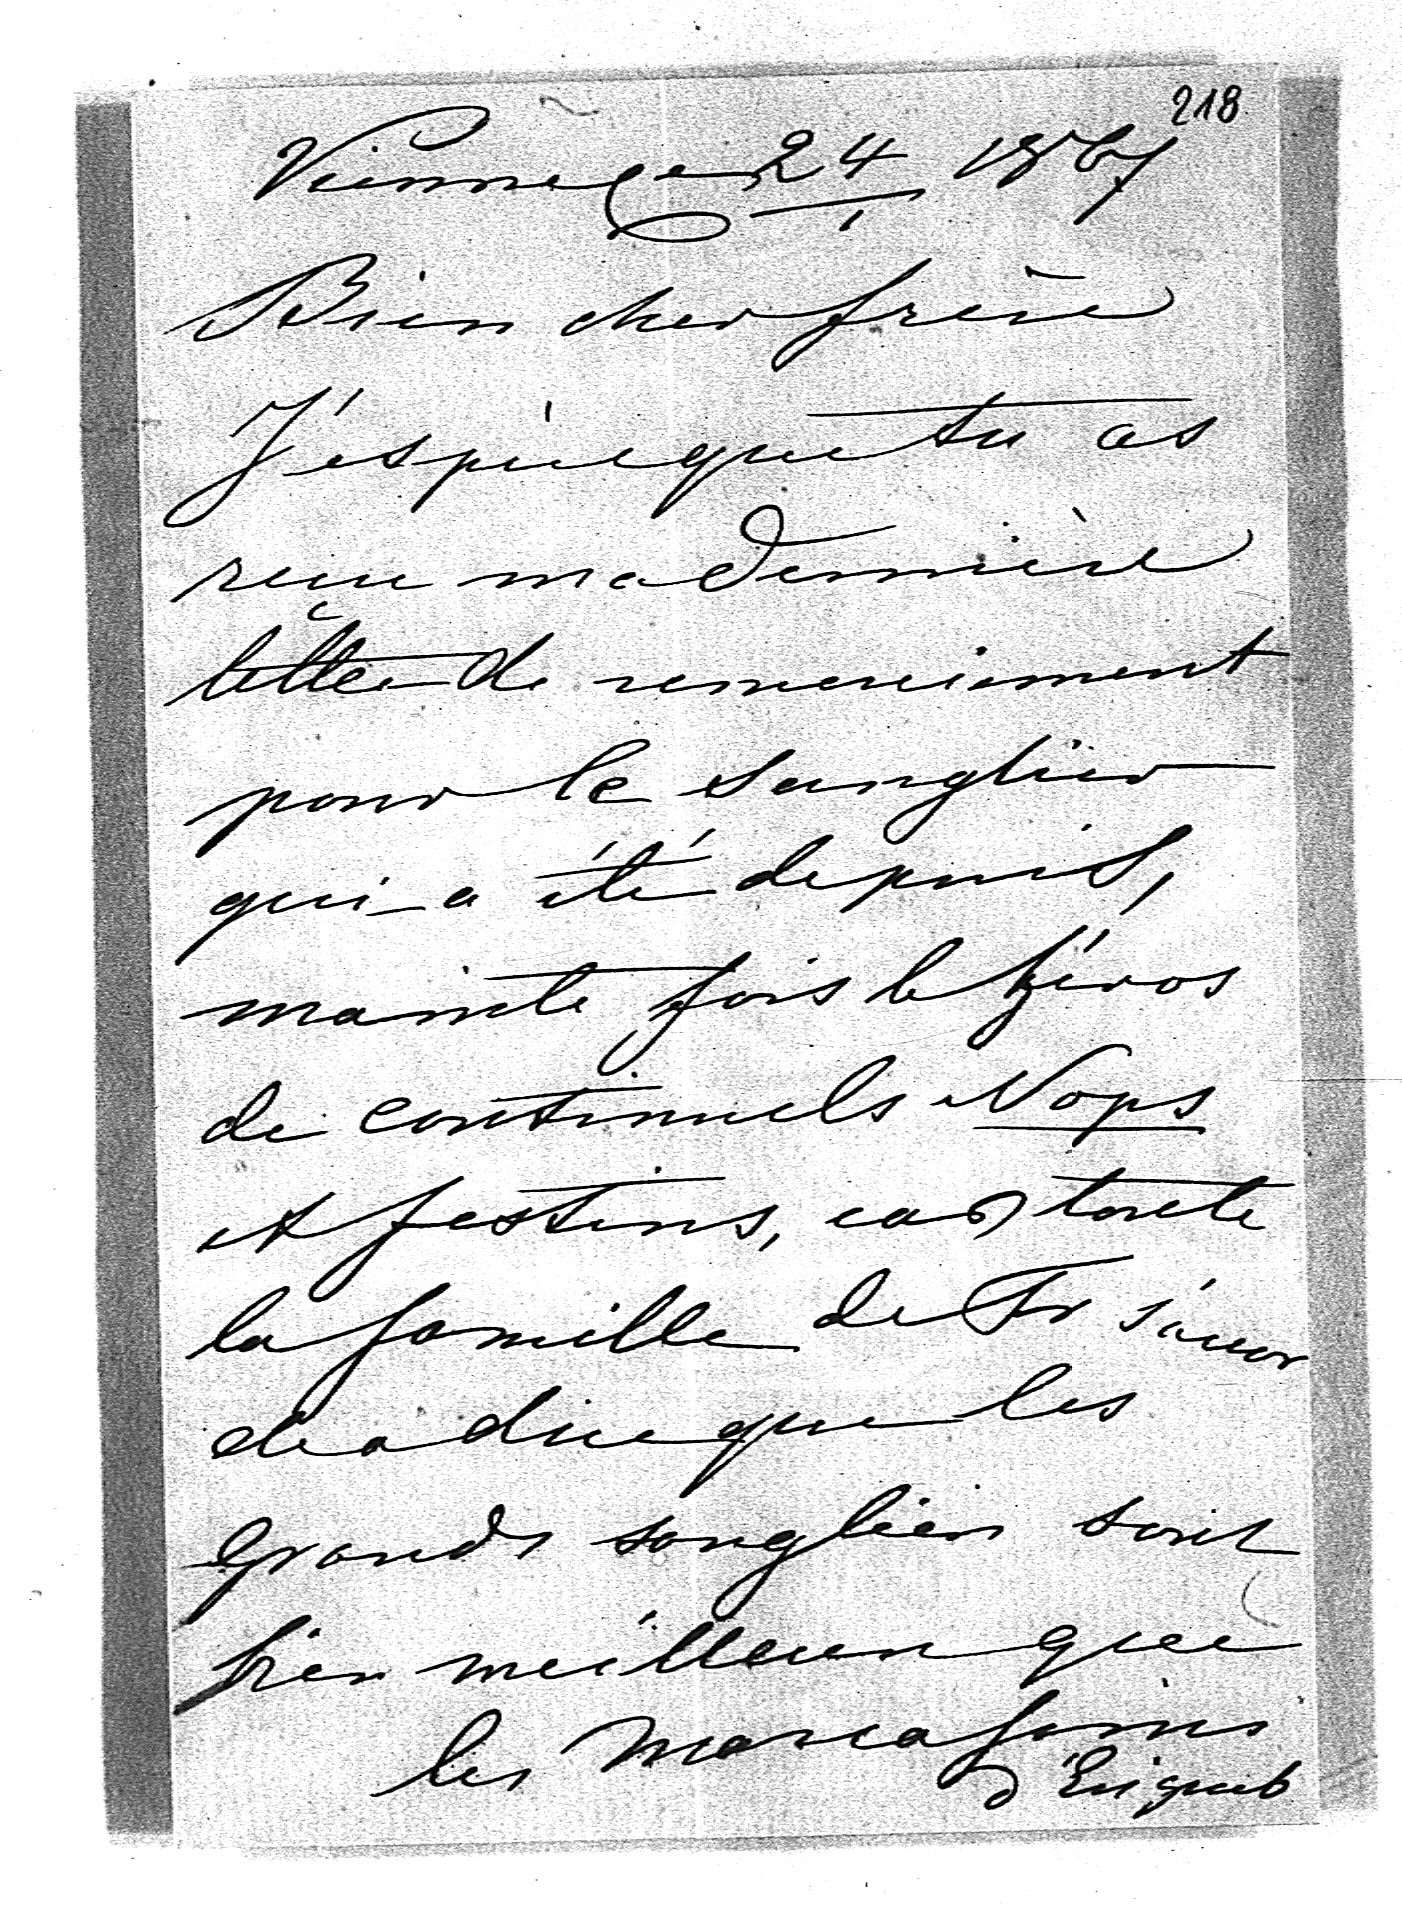 218
Vienne ce 24/1 1867
Bien cher frère
J'éspère que tu as
reçu ma dernière
lettre de remerciement
pour le sanglier
qui a été depuis,
mainte fois le héros
de continuels Nops
et festins, car toute
la famille de Fr s'accor
de a dire que les
grands sangliers sont
bien meilleurs que
les marcassins